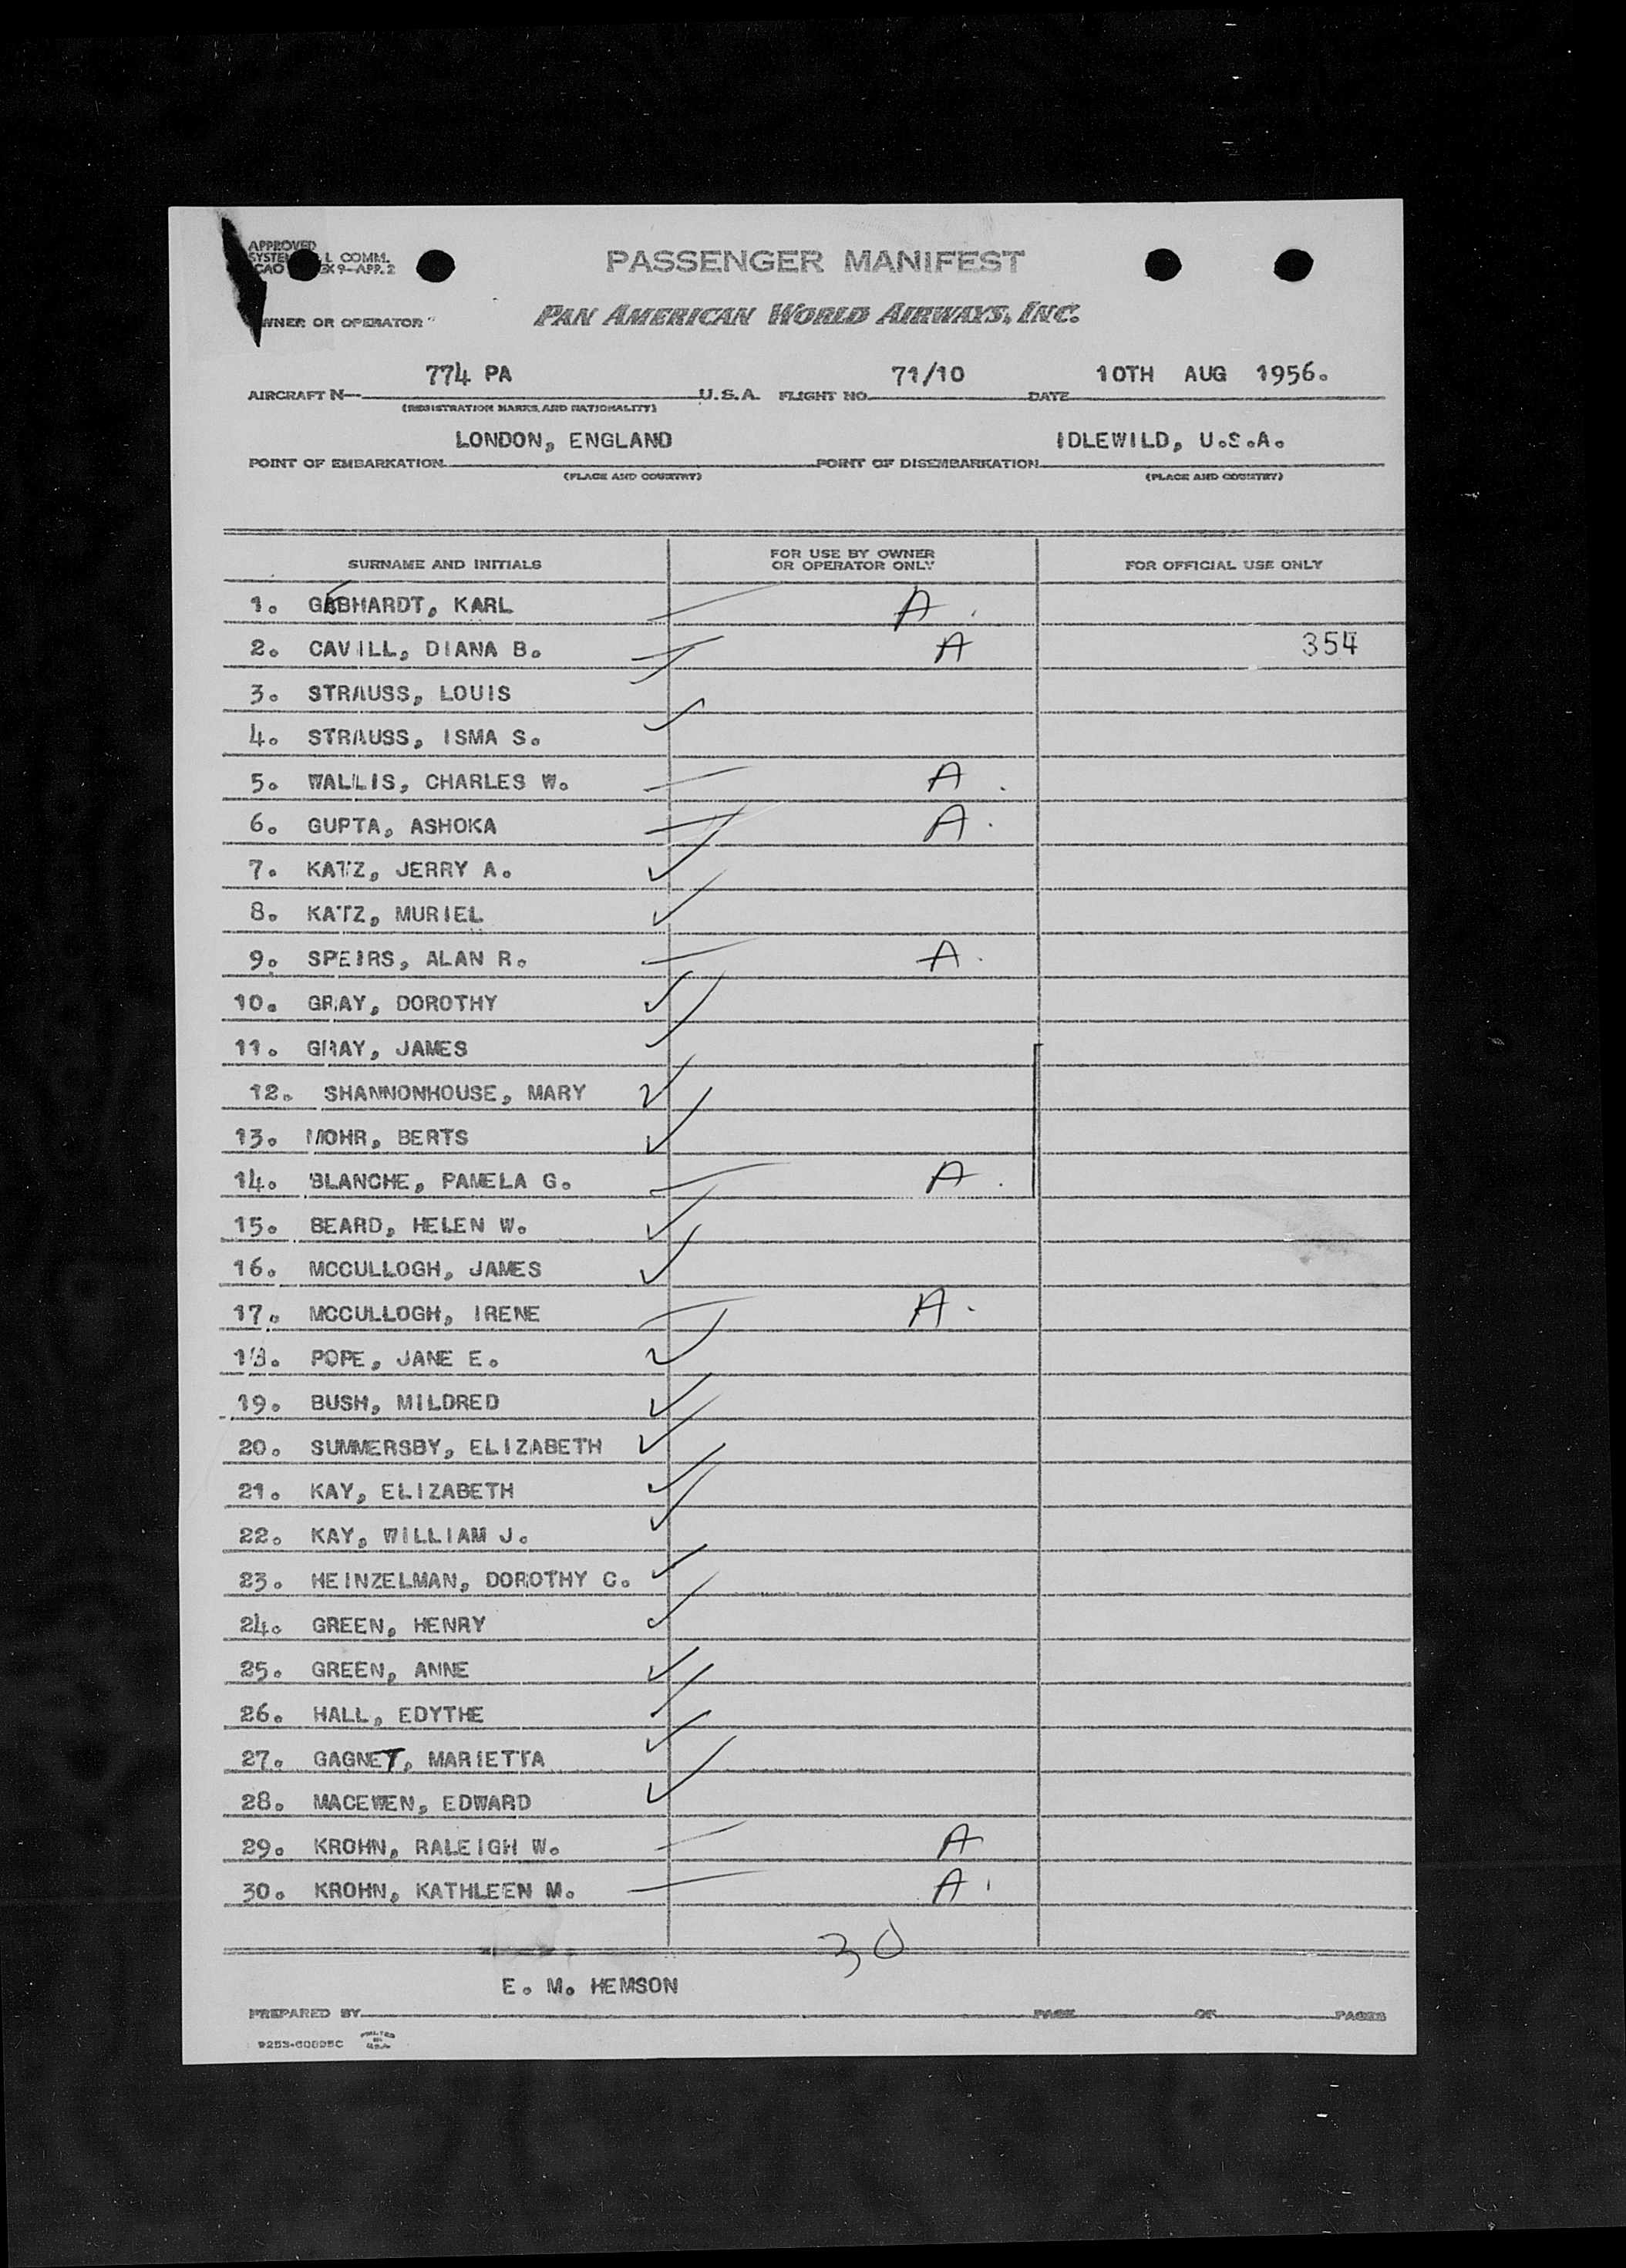 APPROVED
L COMM.
9-APP. 2
PASSENGER MANIFEST
WNER OR OPERATOR
PAN AMERICAN WORLD AIRWAYS, INC.
774 PA 71/10 10TH AUG 1956.
AIRCRAFT N- U.S.A. FLIGHT NO. DATE
(REGISTRATION MARKS AND NATIONALITY)
LONDON, ENGLAND IDLEWILD, U.S.A.
POINT OF EMBARKATION POINT OF DISEMBARKATION
(PLACE AND COUNTRY) (PLACE AND COUNTRY)
SURNAME AND INITIALS FOR USE BY OWNER OR OPERATOR ONLY FOR OFFICIAL USE ONLY
1. KARL A.
2. CAVILL, DIANA B. A 354
3. STRAUSS, LOUIS
4. STRAUSS, ISMA S.
5. WALLIS, CHARLES W. A.
6. GUPTA, ASHOKA A.
7. KATZ, JERRY A.
8. KATZ, MURIEL
9. SPEIRS, ALAN R. A.
10. GRAY, DOROTHY
11. GRAY, JAMES
12. SHANNONHOUSE, MARY
13. MOHR, BERTS
14. BLANCHE, PAMELA G. A.
15. BEARD, HELEN W.
16. MCCULLOGH, JAMES
17. MCCULLOGH, IRENE A.
18. POPE, JANE E.
19. BUSH, MILDRED
20. SUMMERSBY, ELIZABETH
21. KAY, ELIZABETH
22. KAY, WILLIAM J.
23. HEINZELMAN, DOROTHY C.
24. GREEN, HENRY
25. GREEN, ANNE
26. HALL, EDYTHE
27. GAGNET, MARIETTA
28. MACEWEN, EDWARD
29. KROHN, RALEIGH W. A
30. KROHN, KATHLEEN M. A.
30
E. M. HEMSON
PREPARED BY PAGE OF PAGES
PRINTED IN U.S.A.